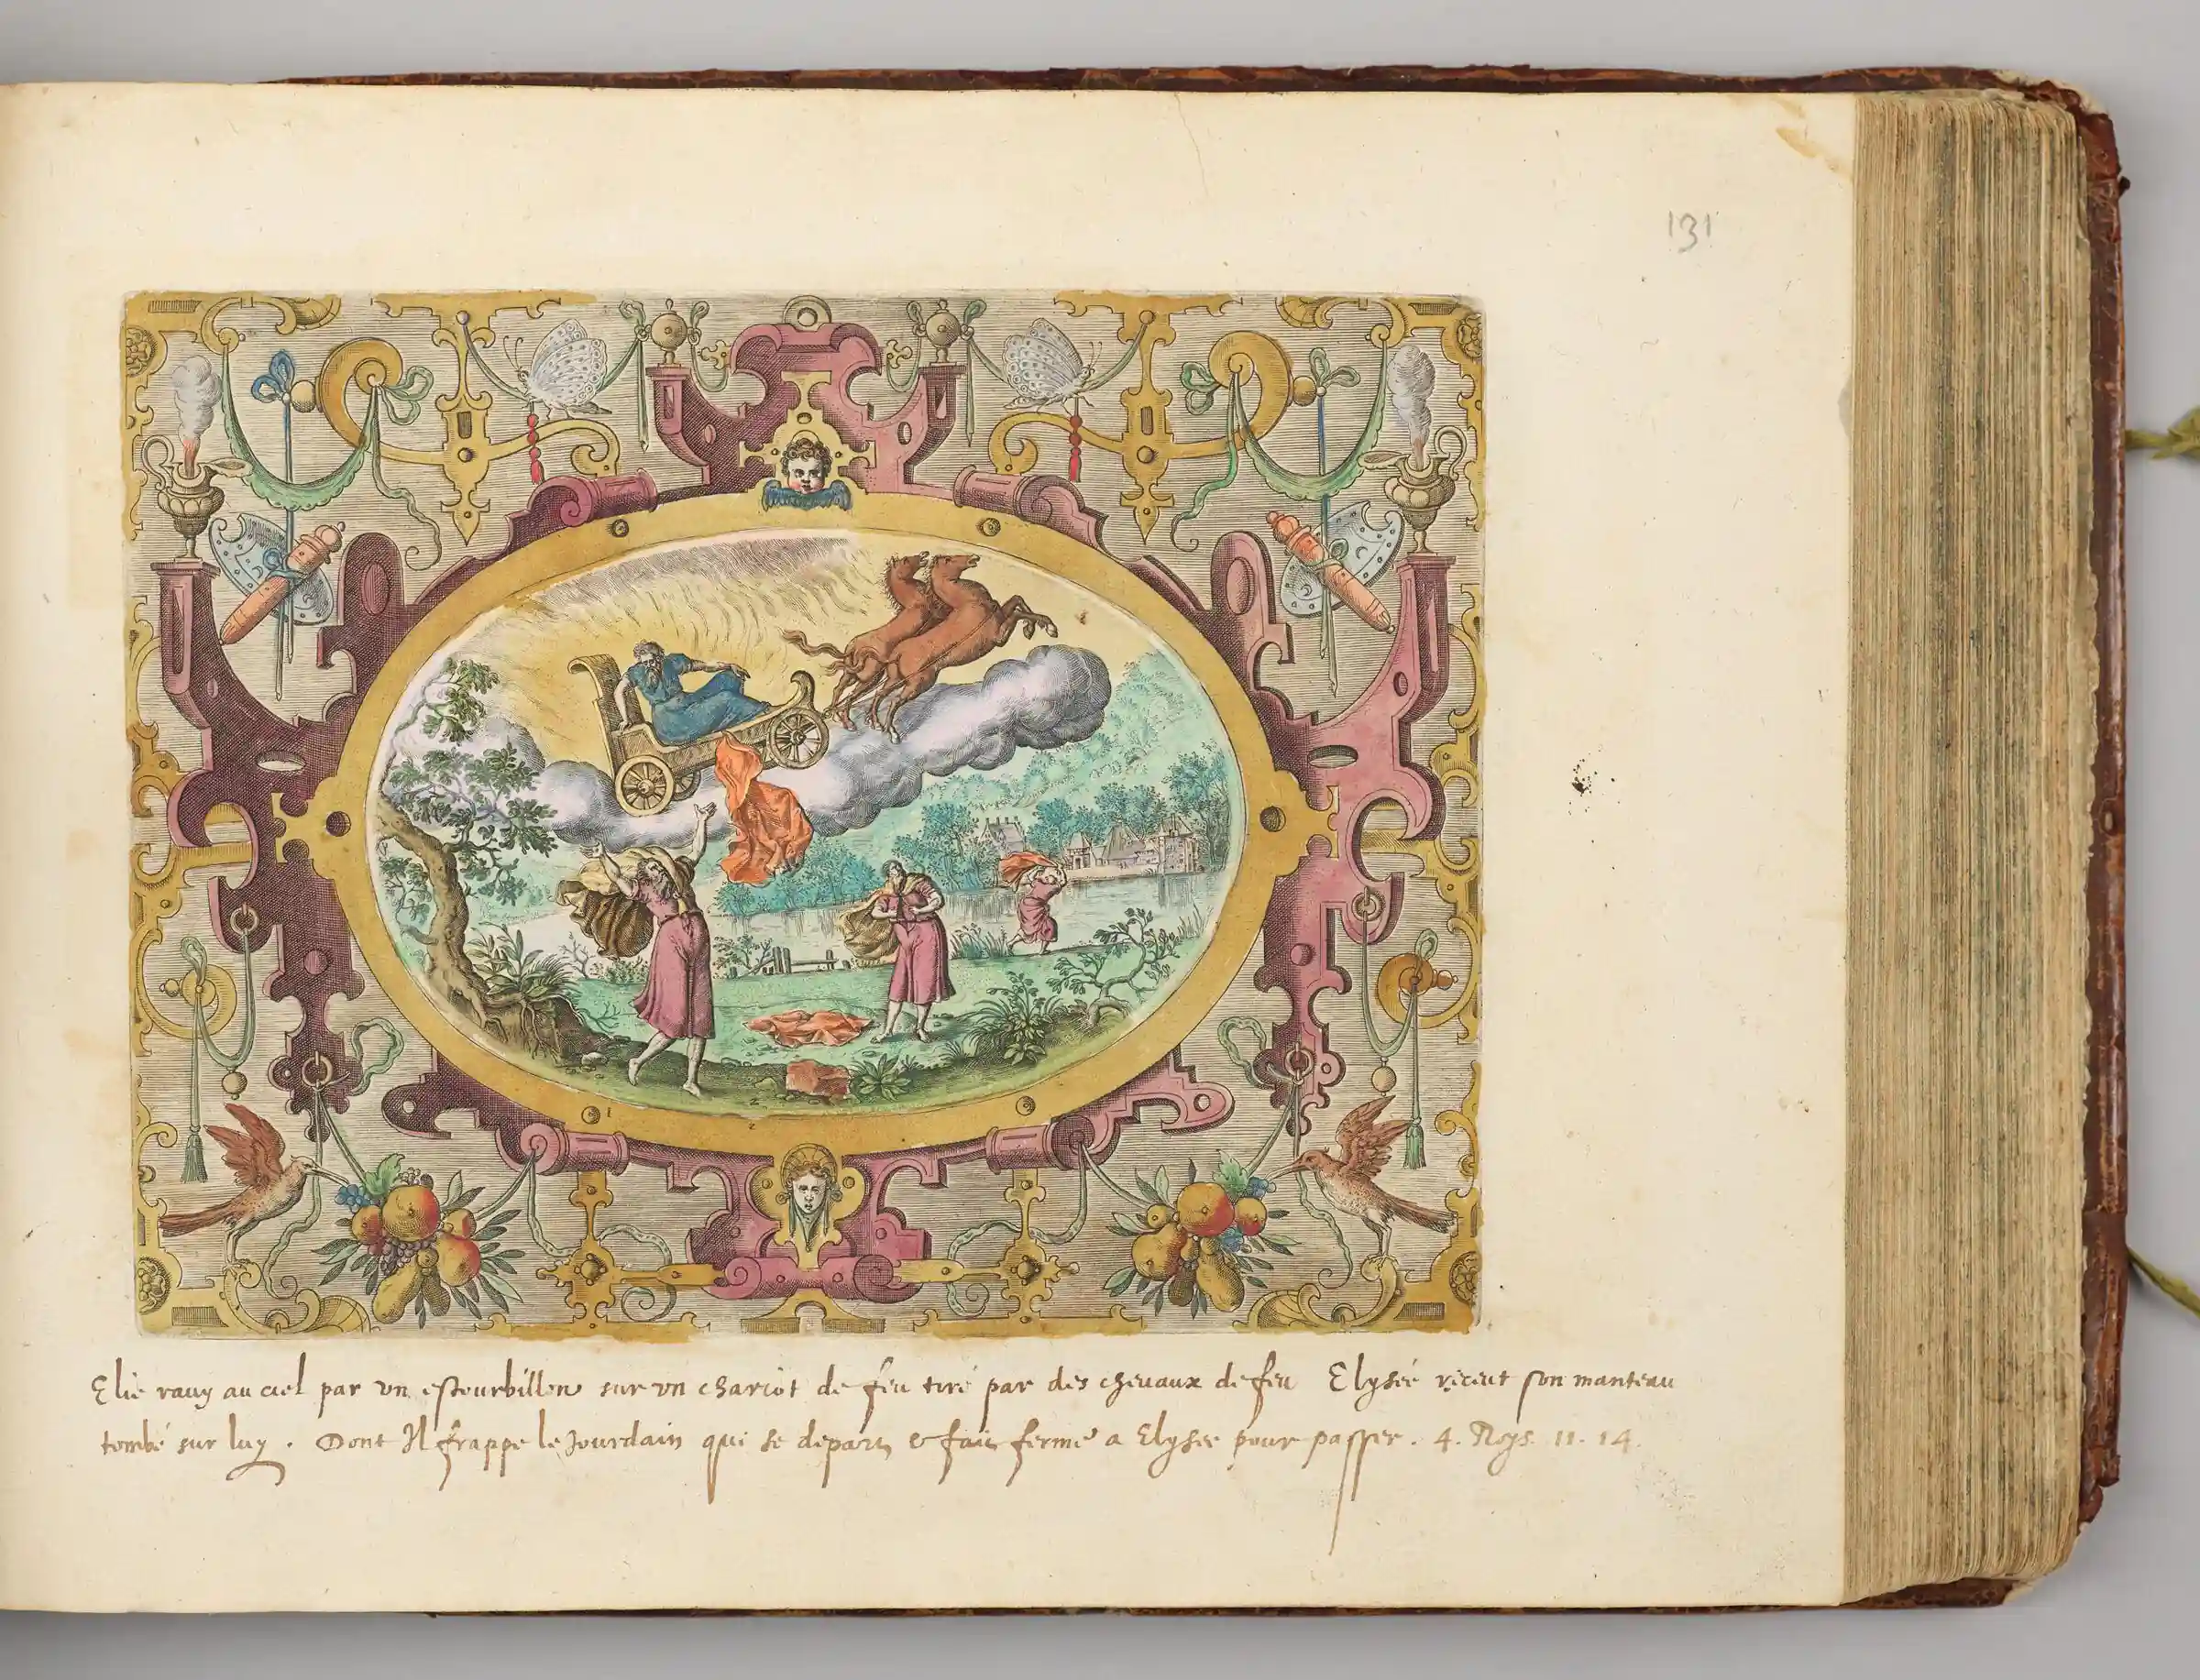 131
Elie rauy au ciel par vn estourbillon sur vn chariot de feu tiré par des cheuaux de feu Elysée reçeut son manteau
tombé sur luy. Dont Il frappe le Jourdain qui se depart & fait ferme a Elysee pour passer. 4. Roys. 11. 14.